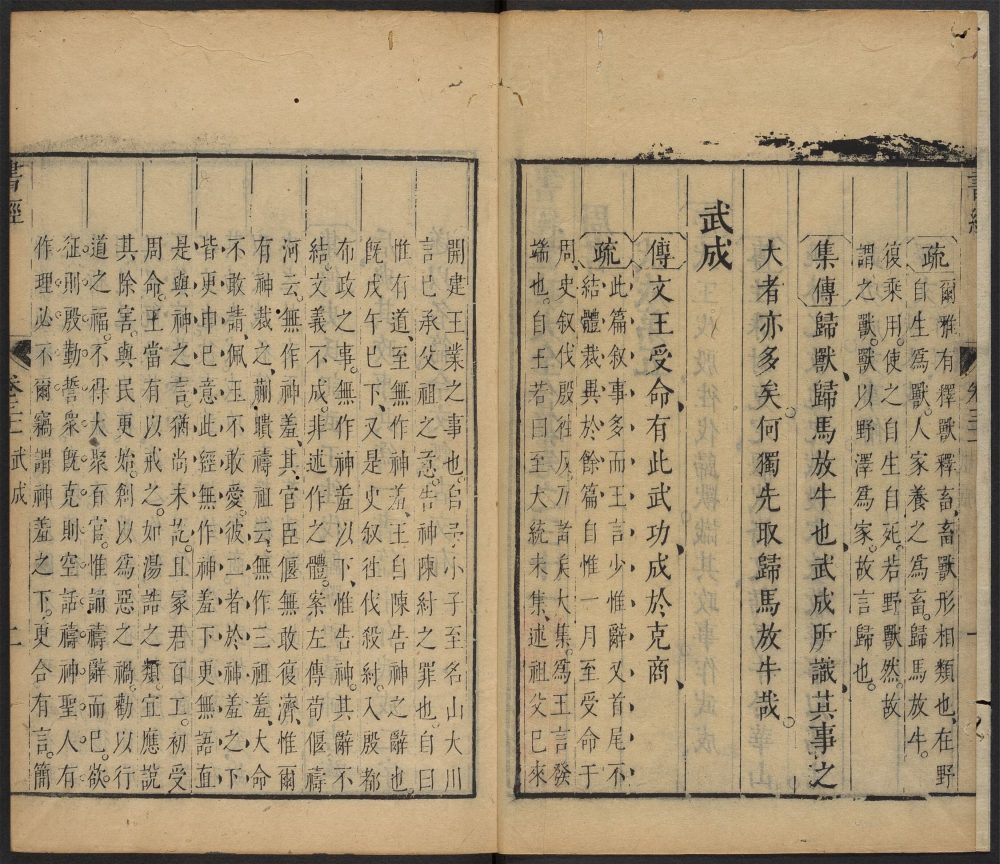 疏
爾雅有釋獸釋畜、畜獸形相類也、在野
自生爲獸、人家養之爲畜。歸馬放牛。
復乘用。使之自生自死。若野獸然。故
謂之獸。獸以野澤爲家。故言歸也。
集傳歸獸、歸馬放牛也、武成所識、其事之
大者亦多矣。何獨先取歸馬放牛哉。
武成
傳文王受命、有此武功、成於克商、
疏
此篇叙事多而王言少惟辭又首尾不
結、體裁異於餘篇自惟一月至受命于
周、史叙伐殷往反、及諸侯大集。爲王言發
端也。自王若曰至大統未集、述祖父已來
開建王業之事也。自予小子至名山大川
言已承父祖之意。告神陳紂之罪也、自曰
惟有道、至無作神羞、王自陳告神之辭也。
旣戊午巳下、又是史叙往伐殺紂。入殷都
布政之事。無作神羞以下、惟告神。其辭不
結。文義不成。非述作之體。案左傳荀偃禱
河云。無作神羞、其官臣偃無敢復濟、惟爾
有神裁之、蒯聵禱祖云、無作三祖羞、大命
不敢請、佩玉不敢愛。彼二者於神羞之下
皆更申巳意、此經無作神羞下更無語直
是與神之言。猶尚未訖。且冢君百工。初受
周命。王當有以戒之。如湯誥之類。宜應說
其除害。與民更始。創以爲惡之禍。勸以行
道之福。不得大聚百官。惟誦禱辭而巳。欲
征則殷勤誓衆。旣克則空話禱神。聖人有
作理必不爾。竊謂神羞之下。更合有言。簡
書經
卷三
武成
二